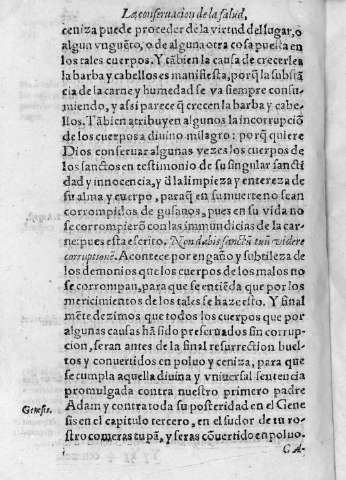 La conseruacion de la salud,
ceniza puede proceder de la virtud del lugar, o
algun vnguẽto, o de alguna otra cosa puesta en
los tales cuerpos. Y tãbien la causa de crecerles
la barba y cabellos es manifiesta, porq̃ la substã
cia de la carne y humedad se va siempre consu-
miendo, y assi parece q̃ crecen la barba y cabe-
llos. Tãbien atribuyen algunos la incorrupciõ
de los cuerpos a diuino milagro: porq̃ quiere
Dios conseruar algunas vezes los cuerpos de
los sanctos en testimonio de su singular sancti
dad y innocencia, y d̃ la limpieza y entereza de
su alma y cuerpo, paraq̃ en su muerte no sean
corrompidos de gusanos, pues en su vida no
se corrompierõ con las immundicias de la car
ne: pues esta escrito. Non dabis sanctũ tuũ videre
corruptionẽ. Acontece por engaño y subtileza de
los demonios que los cuerpos de los malos no
se corrompan, para que se entiẽda que por los
merecimientos de los tales se haze esto. Y final
mẽte dezimos que todos los cuerpos que por
algunas causas hã sido preseruados sin corrup-
cion, seran antes de la final resurrection buel-
tos y conuertidos en poluo y ceniza, para que
se cumpla aquella diuina y vniuersal sentencia
promulgada contra nuestro primero padre
Genesis.
Adam y contra toda su posteridad en el Gene
sis en el capitulo tercero, en el sudor de tu ro-
stro comeras tu pã, y seras cõuertido en poluo.
CA-